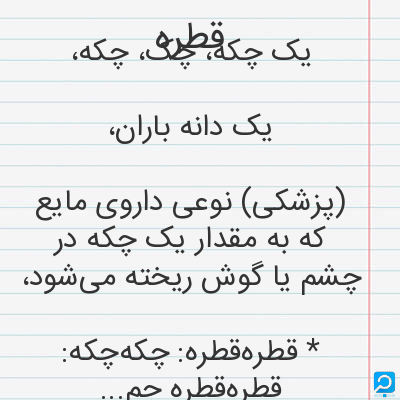 قطره
یک چکه، چکک، چکه،
یک دانه باران،
(پزشکی) نوعی داروی مایع
که به مقدار یک چکه در
چشم یا گوش ریخته می‌شود،
* قطره‌قطره: چکه‌چکه:
قطره‌قطره جم...